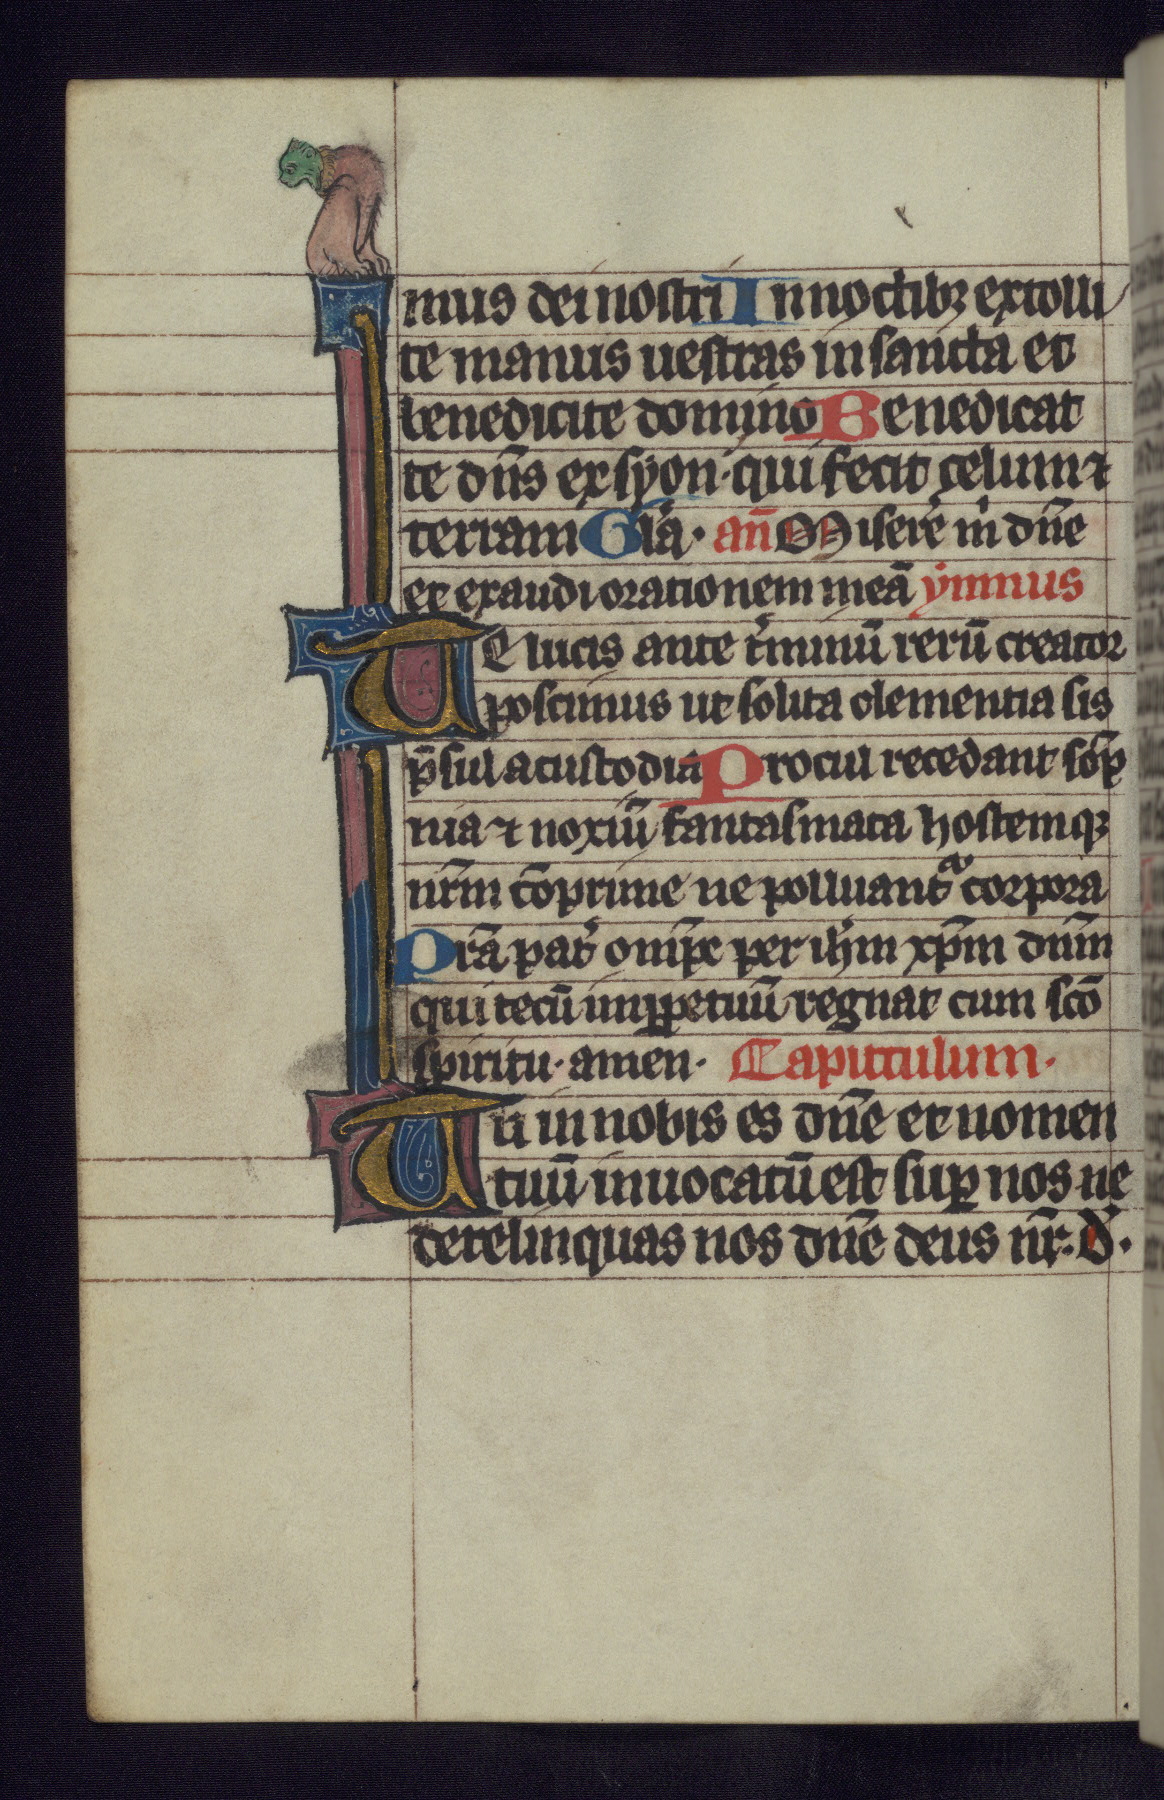 mus dei nostri In noctibꝫ extolli
te manus uestras in sancta et
benedicite domino Benedicat
te dn̄s ex syon· qui fecit celum ⁊
terram Gl̄a· an̄ Miserͤ m̍ dn̄e
et exaudi orationem meā ymnus
Te lucis ante t̍minū rerū creator
poscimus ut solita clementia sis
p̄sul ad custodiā Procul recedant sōp
nia ⁊ noxiū fantasmata hostemqꝫ
nr̄m cōprime ne polluant᷑ corpora
Pr̄a pat̍ omp̄e per ih̄m xp̄m dn̄m
qui tecū imꝑpetuū regnat cum sc̄o
spiritu· amen· Capitulum·
Tu in nobis es dn̄e et nomen
tuū inuocatū est suꝑ nos ne
derelinquas nos dn̄e deus nr̄· D̍·